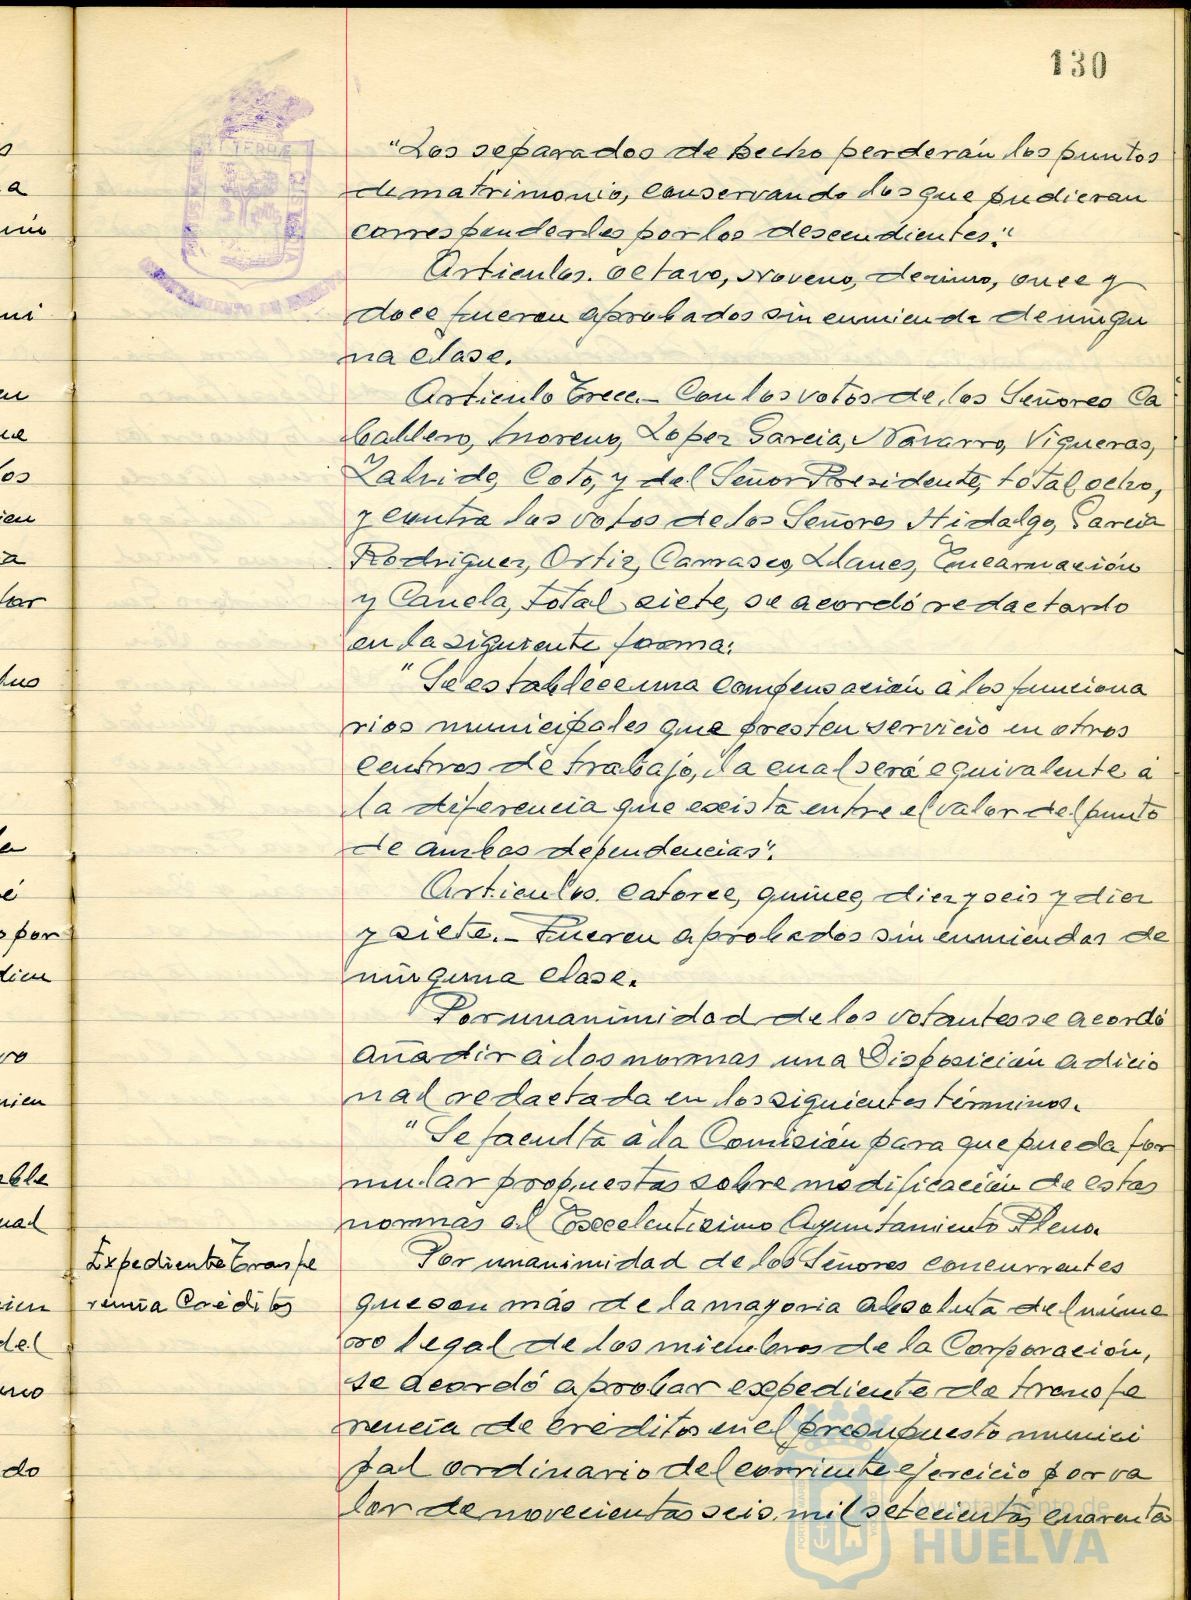 130
"Los separados de hecho perderán los puntos
de matrimonio, conservando los que pudieran
corresponderles por los descendientes."
Articulos. octavo, Noveno, decimo, once y
doce fueron aprobados sin enmienda de ningu
na clase.
Articulo Trece.- Con los votos de los Señores Ca
ballero, Moreno, Lopez Garcia, Navarro, Vigueras,
Zalvide, Coto, y del Señor Presidente, total ocho,
y contra los votos de los Señores Hidalgo, Garcia
Rodriguez, Ortiz, Carrasco, Llanes, Encarnación
y Canela, total siete, se acordó redactarlo
en la siguiente forma:
"Se establece una compensación á los funciona
rios municipales que presten servicio en otros
centros de trabajo, la cual será equivalente á
la diferencia que exista entre el valor del punto
de ambas dependencias".
Articulos. catorce, quince, diez y seis y diez
y siete.- Fueron aprobados sin enmiendas de
ninguna clase.
Por unanimidad de los votantes se acordó
añadir á las normas una Disposición adicio
nal redactada en los siguientes términos.
"Se faculta á la Comisión para que pueda for
mular propuestas sobre modificación de estas
normas al Excelentisimo Ayuntamiento Pleno.
Expediente Transfe
rencia Créditos
Por unanimidad de los Señores concurrentes
que son más de la mayoria absoluta del núme
ro legal de los miembros de la Corporación,
se acordó aprobar expediente de transfe
rencia de créditos en el presupuesto munici
pal ordinario del corriente ejercicio por va
lor de novecientas seis mil setecientas cuarenta
Ayuntamiento de
HUELVA